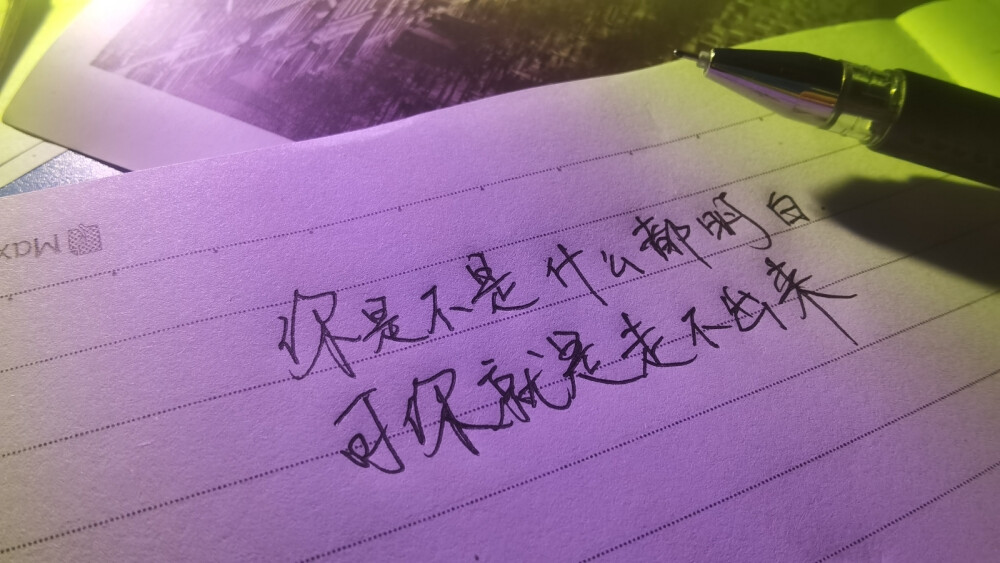 Max
你是不是什么都明白
可你就是走不出来